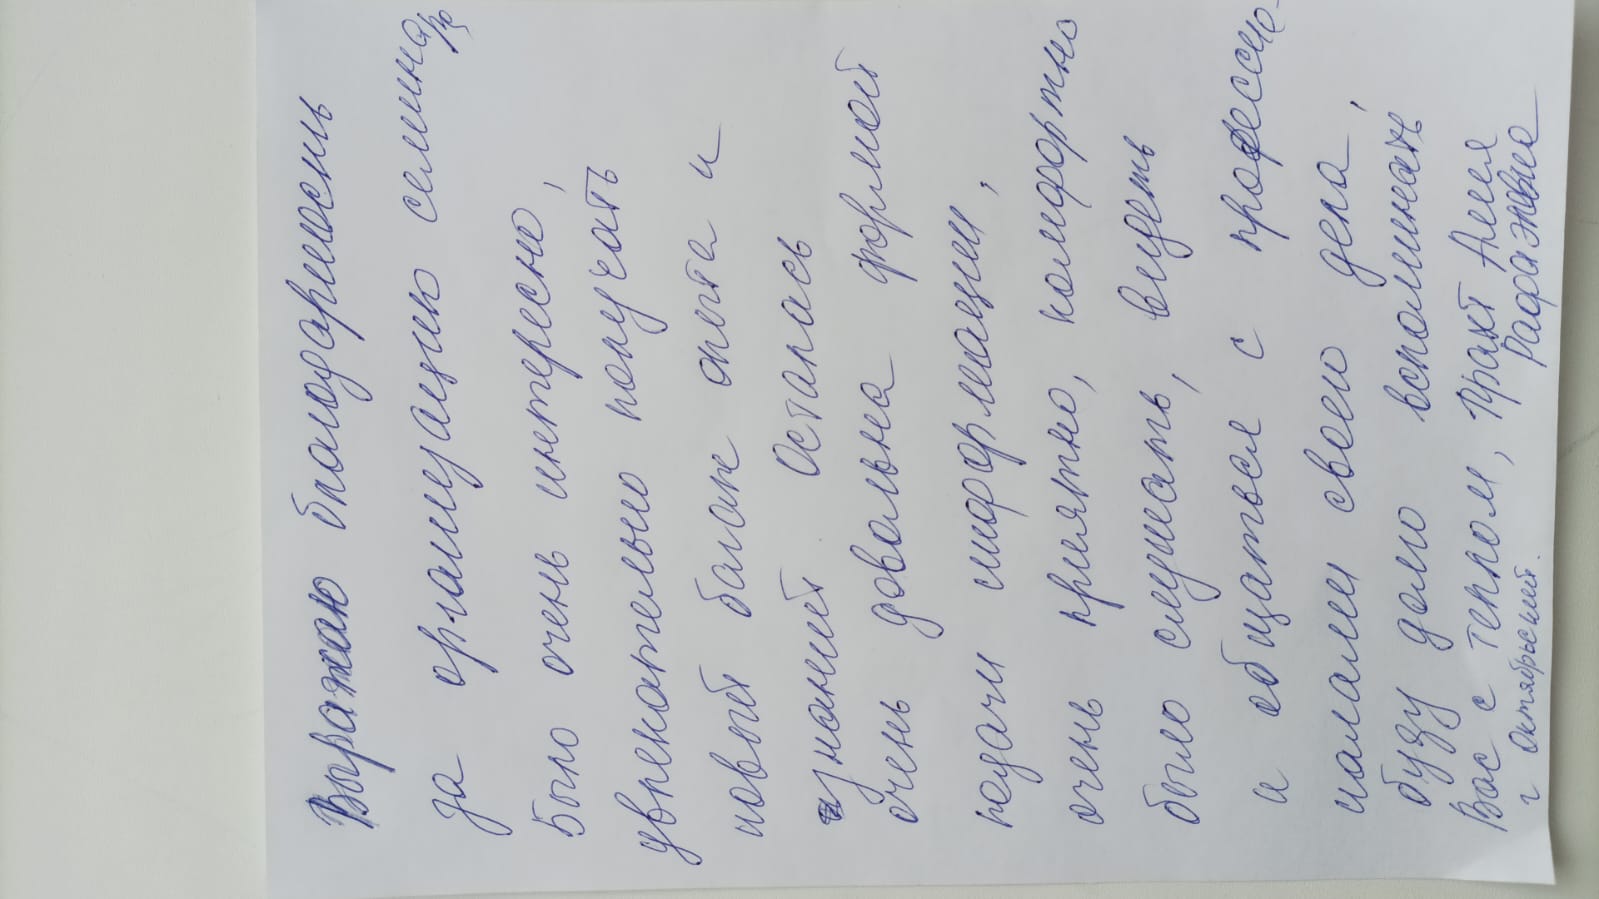 Выражаю благодарность
за организацию семинара
Было очень интересно,
увлекательно получать
новый багаж опыта и
знаний. Осталась
очень довольна формой
подачи информации,
очень приятно, комфортно
было слушать, видеть
и общаться с професси-
налами своего дела,
буду долго вспоминать
Вас с теплом, Тракт Алия
г Октябрьский. Рафаэловна